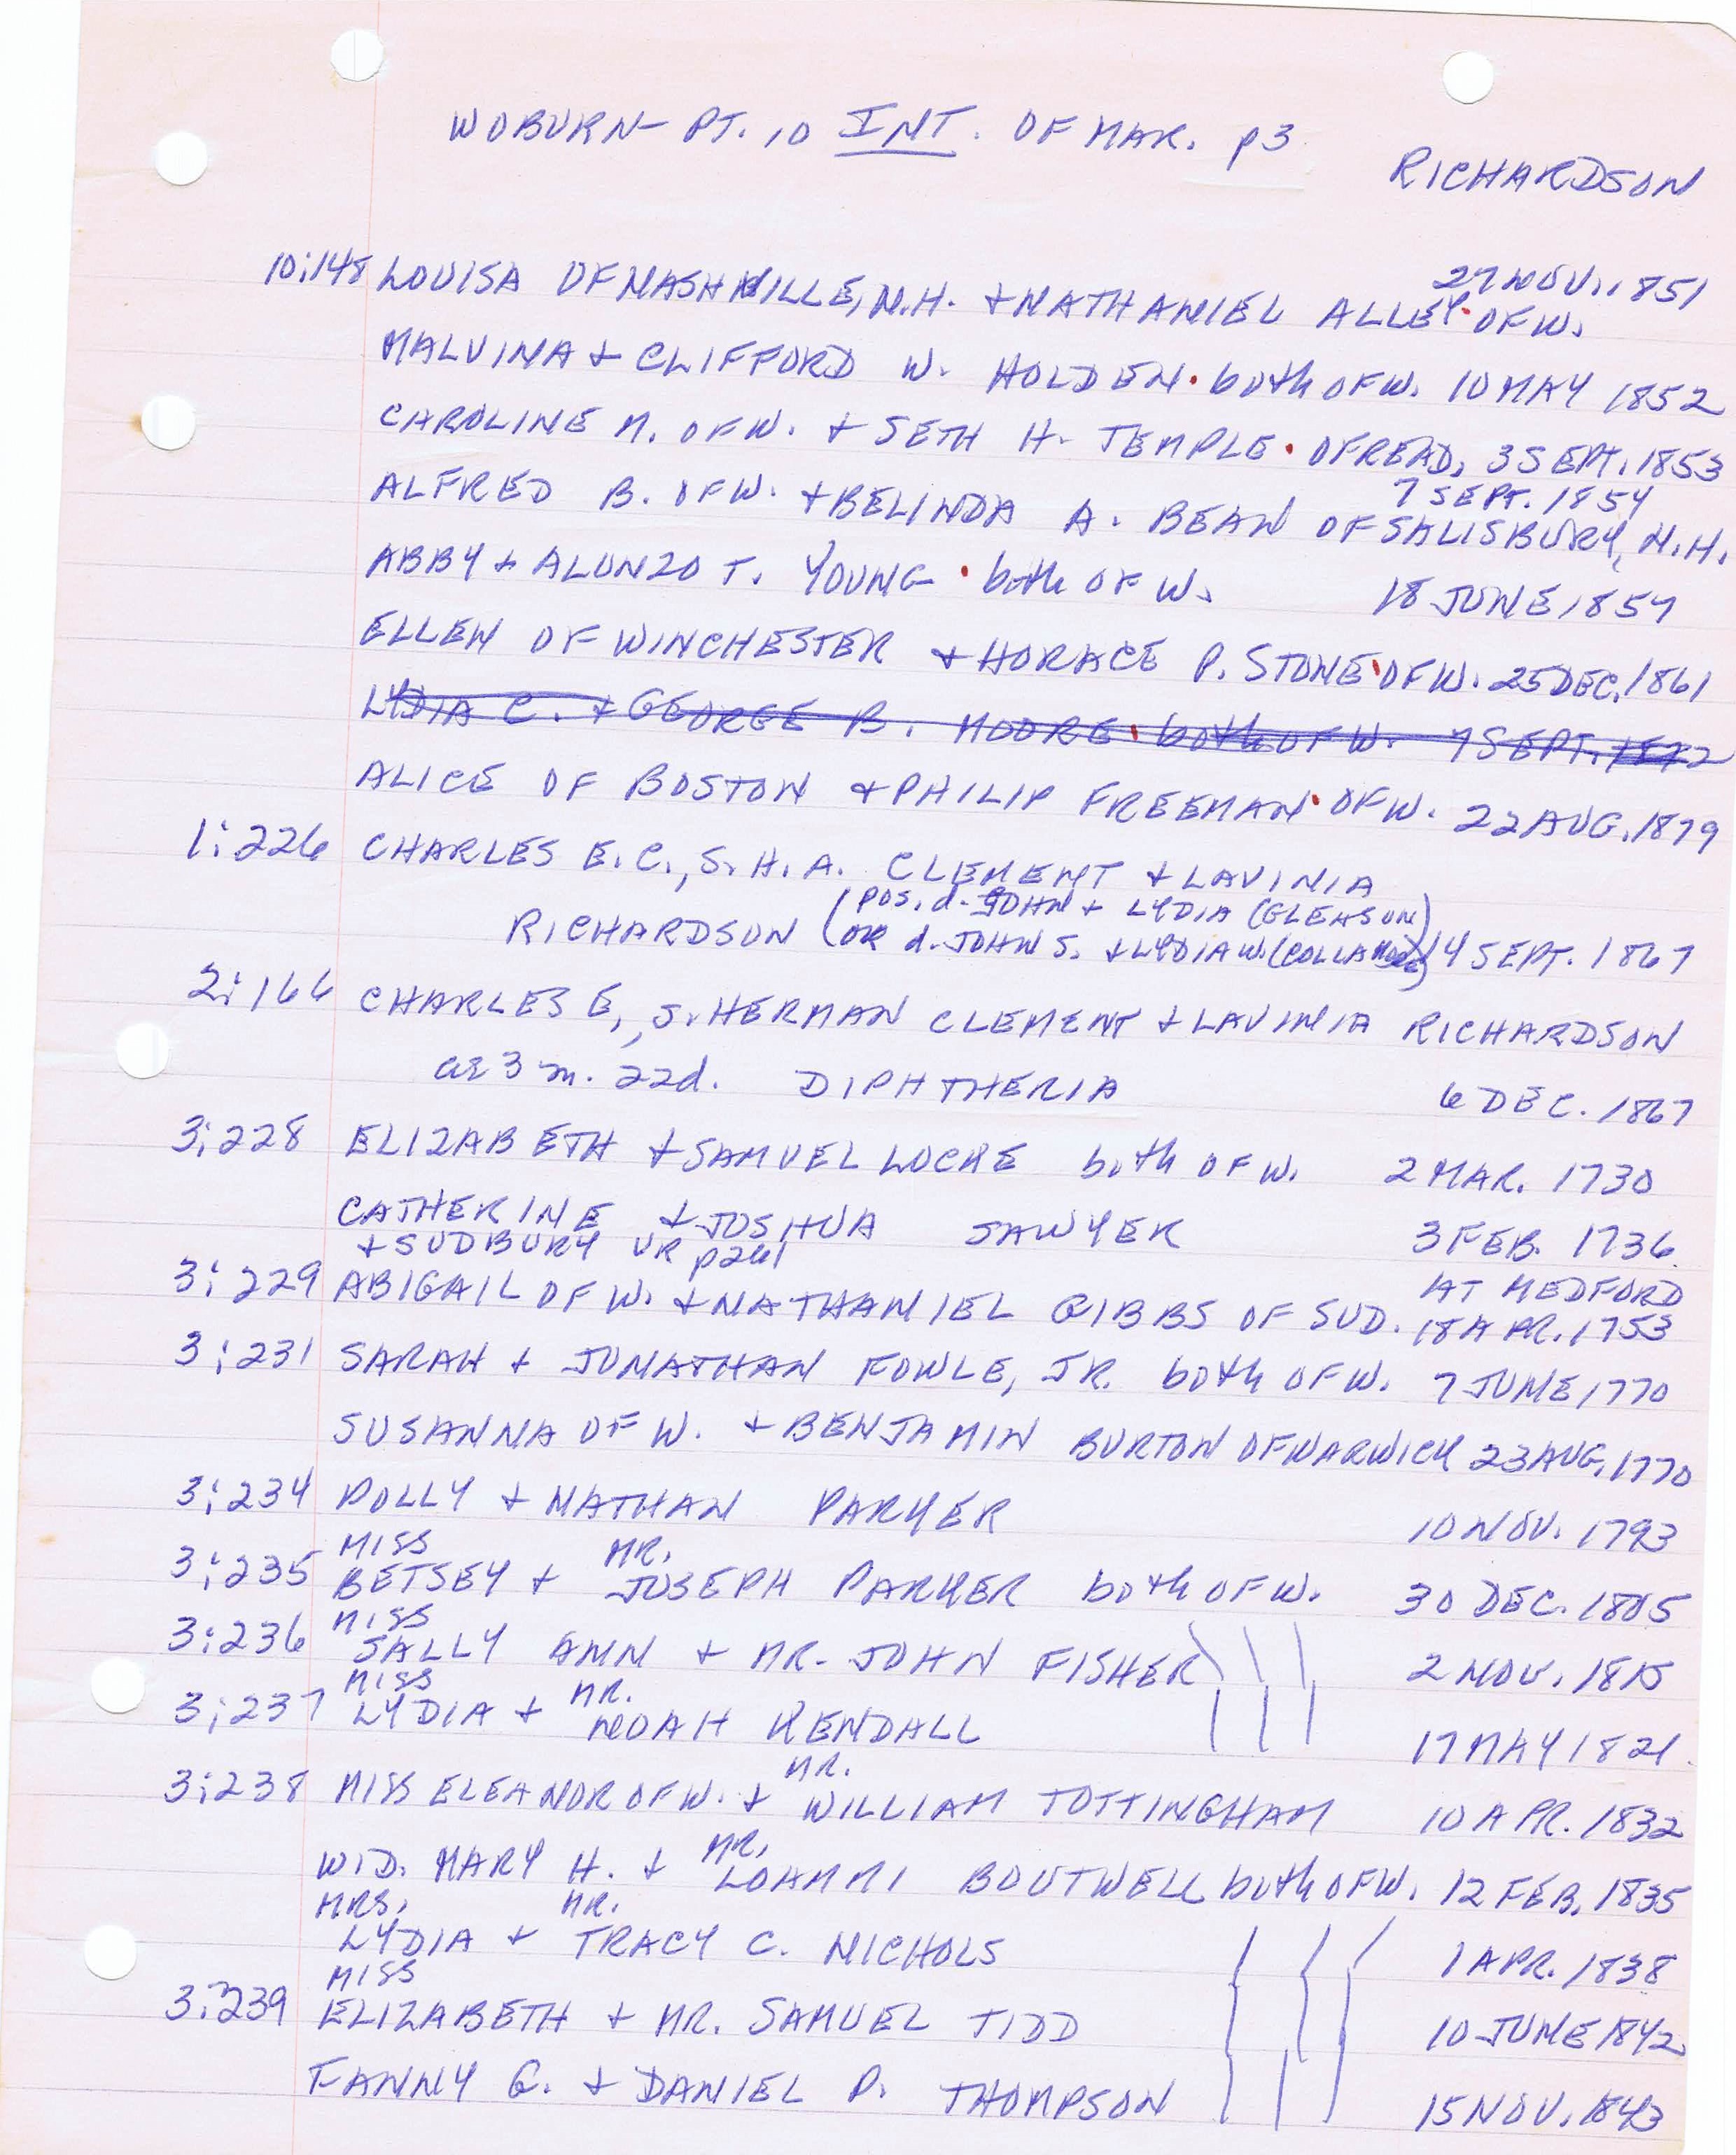 WOBURN- PT. 10 INT. OF MAR. p3
RICHARDSON
27 NOV. 1851
10:148 LOUISA OF NASHVILLE, N.H. + NATHANIEL ALLEY. OF W.
MALVINA + CLIFFORD W. HOLDEN. both OF W. 10 MAY 1852
CAROLINE M. OF W. + SETH H. TEMPLE. OF READ, 3 SEPT. 1853
7 SEPT. 1854
ALFRED B. OF W. + BELINDA A. BEAN OF SALISBURY, N.H.
ABBY + ALONZO T. YOUNG. both OF W. 18 JUNE 1857
ELLEN OF WINCHESTER + HORACE P. STONE. OF W. 25 DEC. 1861
LYDIA C. + GEORGE B. MOORE. both OF W. 7 SEPT. 1872
ALICE OF BOSTON + PHILIP FREEMAN. OF W. 22 AUG. 1879
1:226 CHARLES E. C., S. H. A. CLEMENT + LAVINIA
(POS. d. JOHN + LYDIA (GLEASON)
RICHARDSON OR d. JOHN S. + LYDIA W. (COLLAMORE) 14 SEPT. 1867
2:166 CHARLES E, S. HERMAN CLEMENT + LAVINIA RICHARDSON
ae 3 m. 22d. DIPHTHERIA 6 DEC. 1867
3:228 ELIZABETH + SAMUEL LOCKE both OF W. 2 MAR. 1730
CATHERINE + JOSHUA SAWYER 3 FEB. 1736
+ SUDBURY VR p261 AT MEDFORD
3:229 ABIGAIL OF W. + NATHANIEL GIBBS OF SUD. 18 APR. 1753
3:231 SARAH + JONATHAN FOWLE, JR. both OF W. 7 JUNE 1770
SUSANNA OF W. + BENJAMIN BURTON OF WARWICK 23 AUG. 1770
3:234 POLLY + NATHAN PARKER 10 NOV. 1793
MISS MR.
3:235 BETSEY + JOSEPH PARKER both OF W. 30 DEC. 1805
MISS
3:236 SALLY ANN + MR. JOHN FISHER 2 NOV. 1815
MISS MR.
3:237 LYDIA + NOAH KENDALL 17 MAY 1821
MR.
3:238 MISS ELEANOR OF W. + WILLIAM TOTTINGHAM 10 APR. 1832
MR.
WID. MARY H. + LOAMMI BOUTWELL both OF W. 12 FEB. 1835
MRS. MR.
LYDIA + TRACY C. NICHOLS 1 APR. 1838
MISS
3:239 ELIZABETH + MR. SAMUEL TIDD 10 JUNE 1842
FANNY G. + DANIEL P. THOMPSON 15 NOV. 1843